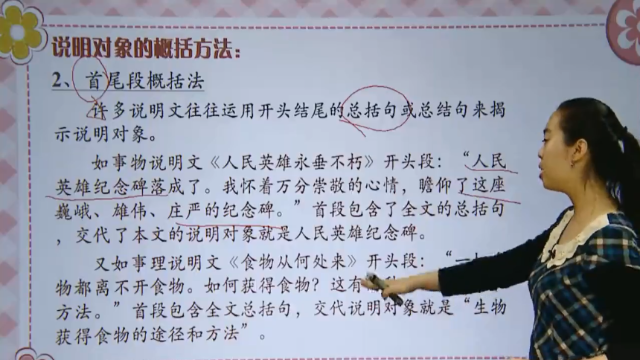 说明对象的概括方法：
2、首尾段概括法
许多说明文往往运用开头结尾的总括句或总结句来揭
示说明对象。
如事物说明文《人民英雄永垂不朽》开头段：“人民
英雄纪念碑落成了。我怀着万分崇敬的心情，瞻仰了这座
巍峨、雄伟、庄严的纪念碑。”首段包含了全文的总括句
，交代了本文的说明对象就是人民英雄纪念碑。
又如事理说明文《食物从何处来》开头段：“一
物都离不开食物。如何获得食物？这有
方法。”首段包含全文总括句，交代说明对象就是“生物
获得食物的途径和方法”。